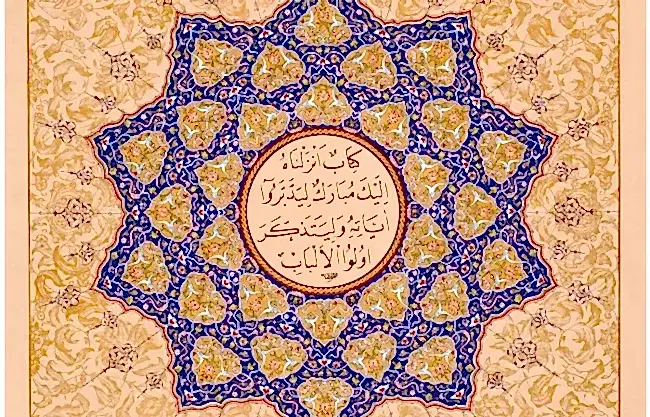 كِتَابٌ اَنْزَلْنَاهُ
اِلَيْكَ مُبَارَكٌ لِيَدَّبَّرُوٓا
اٰيَاتِهٖ وَلِيَتَذَكَّرَ
اُولُوا الْاَلْبَابِ